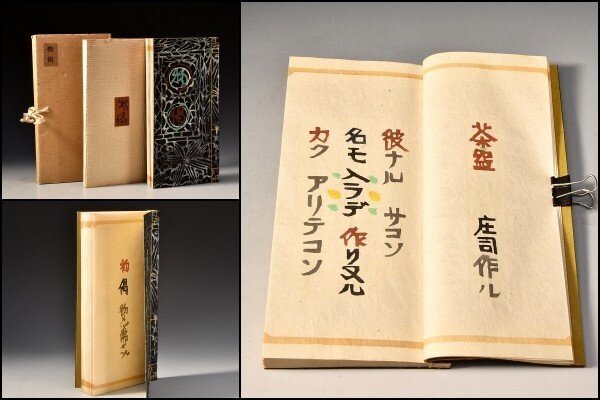 物偈
物偈
茶盌
庄司作ル
彼ナル サコソ
名モ入ラデ 作リヌル
カク アリテコソ